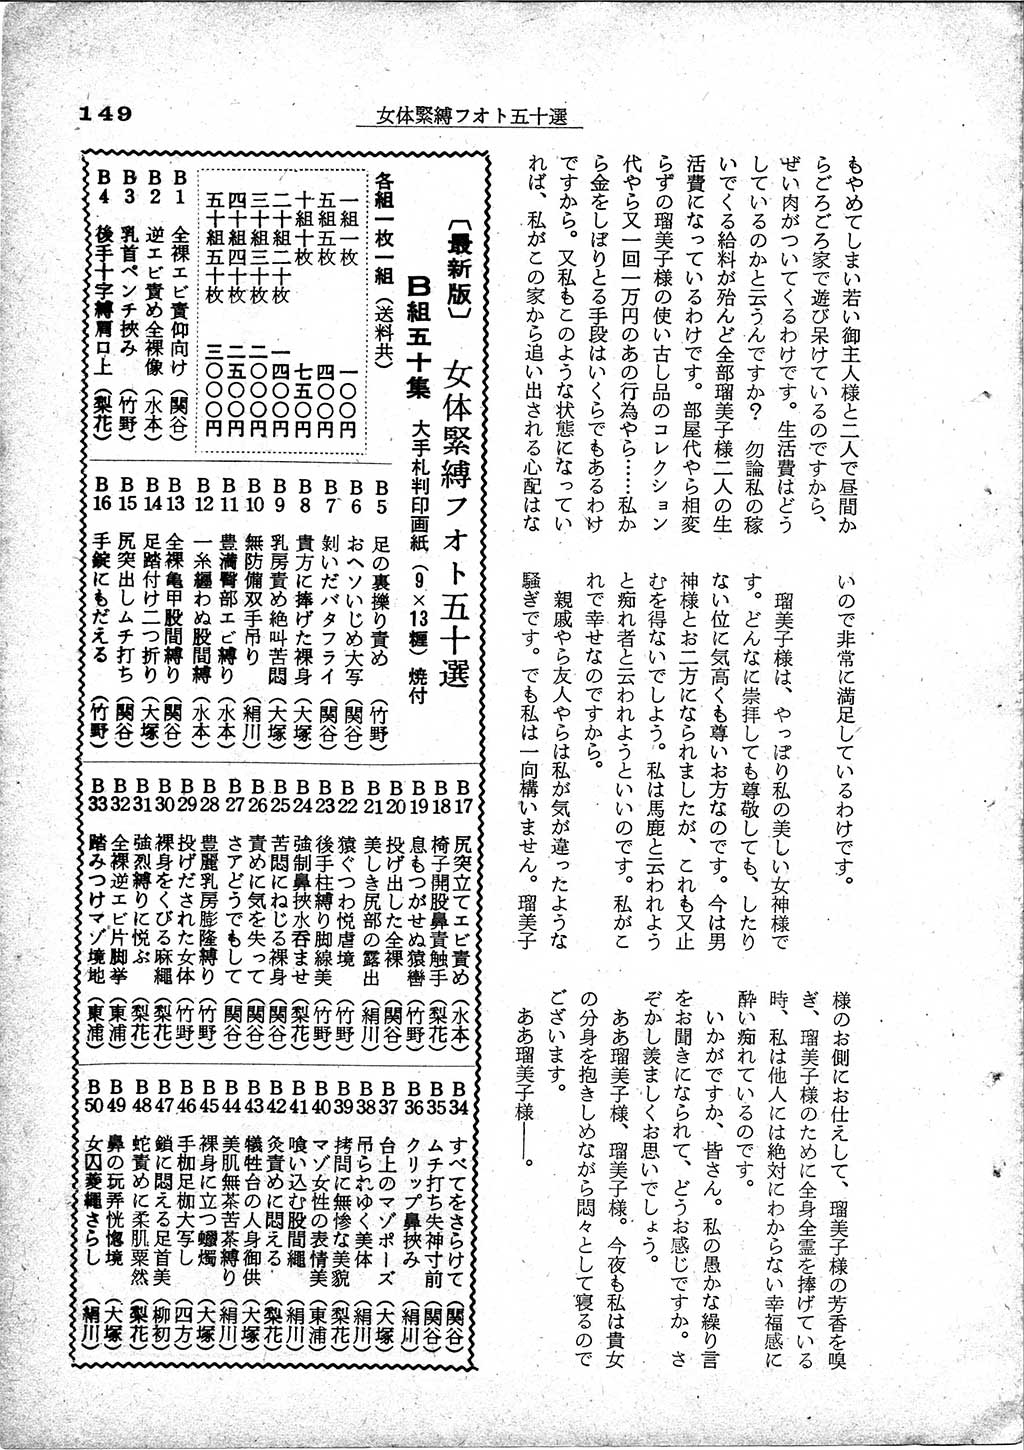 149
女体緊縛フオト五十選
もやめてしまい若い御主人様と二人で昼間か
らごろごろ家で遊び呆けているのですから、
ぜい肉がついてくるわけです。生活費はどう
しているのかと云うんですか？　勿論私の稼
いでくる給料が殆んど全部瑠美子様二人の生
活費になっているわけです。部屋代やら相変
らずの瑠美子様の使い古し品のコレクション
代やら又一回一万円のあの行為やら……私か
ら金をしぼりとる手段はいくらでもあるわけ
ですから。又私もこのような状態になってい
れば、私がこの家から追い出される心配はな
いので非常に満足しているわけです。
瑠美子様は、やっぱり私の美しい女神様で
す。どんなに崇拝しても尊敬しても、したり
ない位に気高くも尊いお方なのです。今は男
神様とお二方になられましたが、これも又止
むを得ないでしよう。私は馬鹿と云われよう
と痴れ者と云われようといいのです。私がこ
れで幸せなのですから。
親戚やら友人やらは私が気が違ったような
騒ぎです。でも私は一向構いません。瑠美子
様のお側にお仕えして、瑠美子様の芳香を嗅
ぎ、瑠美子様のために全身全霊を捧げている
時、私は他人には絶対にわからない幸福感に
酔い痴れているのです。
いかがですか、皆さん。私の愚かな繰り言
をお聞きになられて、どうお感じですか。さ
ぞかし羨ましくお思いでしょう。
ああ瑠美子様、瑠美子様。今夜も私は貴女
の分身を抱きしめながら悶々として寝るので
ございます。
ああ瑠美子様――。
〔最新版〕　女体緊縛フオト五十選
B組五十集　大手札判印画紙（9×13糎）焼付
各組一枚一組（送料共）
一組一枚　一〇〇円
五組五枚　四〇〇円
十組十枚　七五〇円
二十組二十枚　一四〇〇円
三十組三十枚　二〇〇〇円
四十組四十枚　二五〇〇円
五十組五十枚　三〇〇〇円
B1　全裸エビ責仰向け（関谷）
B2　逆エビ責め全裸像（水本）
B3　乳首ペンチ挾み（竹野）
B4　後手十字縛肩口上（梨花）
B5　足の裏擽り責め（竹野）
B6　おヘソいじめ大写（関谷）
B7　剝いだバタフライ（関谷）
B8　貴方に捧げた裸身（大塚）
B9　乳房責め絶叫苦悶（大塚）
B10　無防備双手吊り（絹川）
B11　豊満臀部エビ縛り（水本）
B12　一糸纒わぬ股間縛（水本）
B13　全裸亀甲股間縛り（関谷）
B14　足踏付け二つ折り（大塚）
B15　尻突出しムチ打ち（関谷）
B16　手錠にもだえる（竹野）
B17　尻突立てエビ責め（水本）
B18　椅子開股鼻責触手（梨花）
B19　息もつがせぬ猿轡（竹野）
B20　投げ出した全裸（関谷）
B21　美しき尻部の露出（絹川）
B22　猿ぐつわ悦虐境（竹野）
B23　後手柱縛り脚線美（竹野）
B24　強制鼻挾水呑ませ（梨花）
B25　苦悶にねじる裸身（関谷）
B26　責めに気を失って（関谷）
B27　さアどうでもして（関谷）
B28　豊麗乳房膨隆縛り（竹野）
B29　投げだされた女体（竹野）
B30　裸身をくびる麻繩（梨花）
B31　強烈縛りに悦ぶ（梨花）
B32　全裸逆エビ片脚挙（東浦）
B33　踏みつけマゾ境地（東浦）
B34　すべてをさらけて（関谷）
B35　ムチ打ち失神寸前（関谷）
B36　クリップ鼻挾み（絹川）
B37　台上のマゾポーズ（大塚）
B38　吊られゆく美体（絹川）
B39　拷問に無惨な美貌（梨花）
B40　マゾ女性の表情美（東浦）
B41　喰い込む股間繩（絹川）
B42　灸責めに悶える（梨花）
B43　犠牲台の人身御供（大塚）
B44　美肌無茶苦茶縛り（絹川）
B45　裸身に立つ蠟燭（大塚）
B46　手枷足枷大写し（四方）
B47　鎖に悶える足首美（柳初）
B48　蛇責めに柔肌粟然（梨花）
B49　鼻の玩弄恍惚境（大塚）
B50　女囚菱繩さらし（絹川）